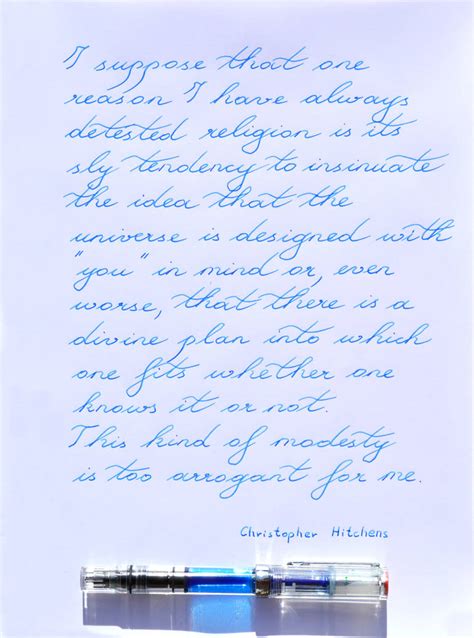 I suppose that one
reason I have always
detested religion is its
sly tendency to insinuate
the idea that the
universe is designed with
"you" in mind or, even
worse, that there is a
divine plan into which
one fits whether one
knows it or not.
This kind of modesty
is too arrogant for me.
Christopher Hitchens